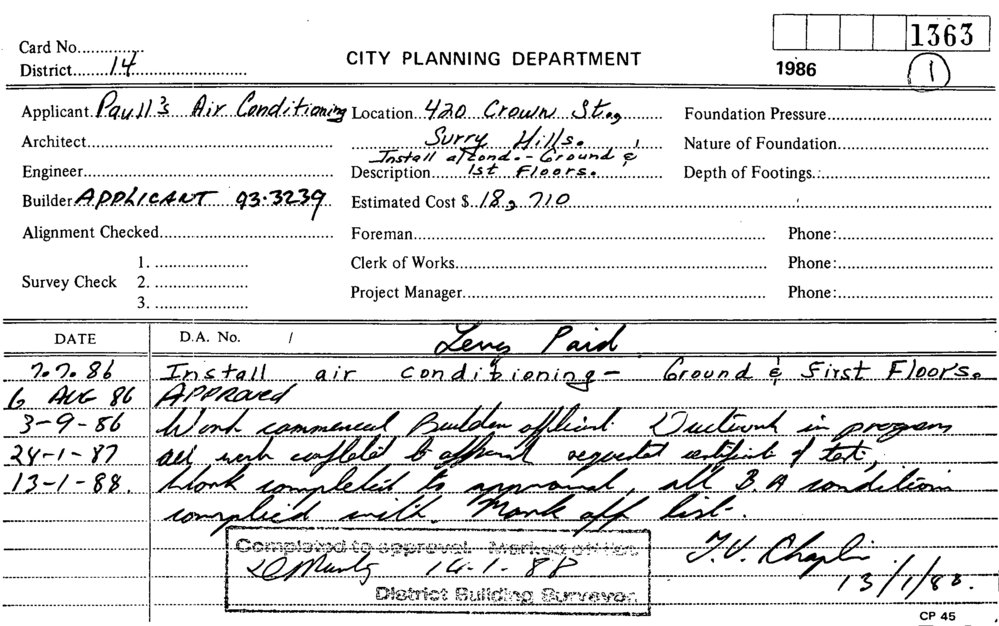 1363
Card No.
District 14
CITY PLANNING DEPARTMENT
1986
1
Applicant Paull's Air Conditioning Location 420 Crown St., Foundation Pressure
Architect Surry Hills. Nature of Foundation
Install a/cond. - Ground &
Engineer Description 1st Floors. Depth of Footings
Builder APPLICANT 93.3239 Estimated Cost $ 18,710
Alignment Checked Foreman Phone:
Survey Check 1. Clerk of Works Phone:
2.
3. Project Manager Phone:
DATE D.A. No. / Levy Paid
7.7.86 Install air conditioning - Ground & First Floors.
6 AUG 86 APPROVED
3-9-86 Work commenced Builder Ductwork in progress
24-1-87 all work to approval requested of test,
13-1-88. Work completed to approval, all B.A conditions
complied with. Mark off list.
Completed to approval. Marked off list.
14-1-88
T.V. Chaplin
13/1/88.
District Building Surveyor.
CP 45